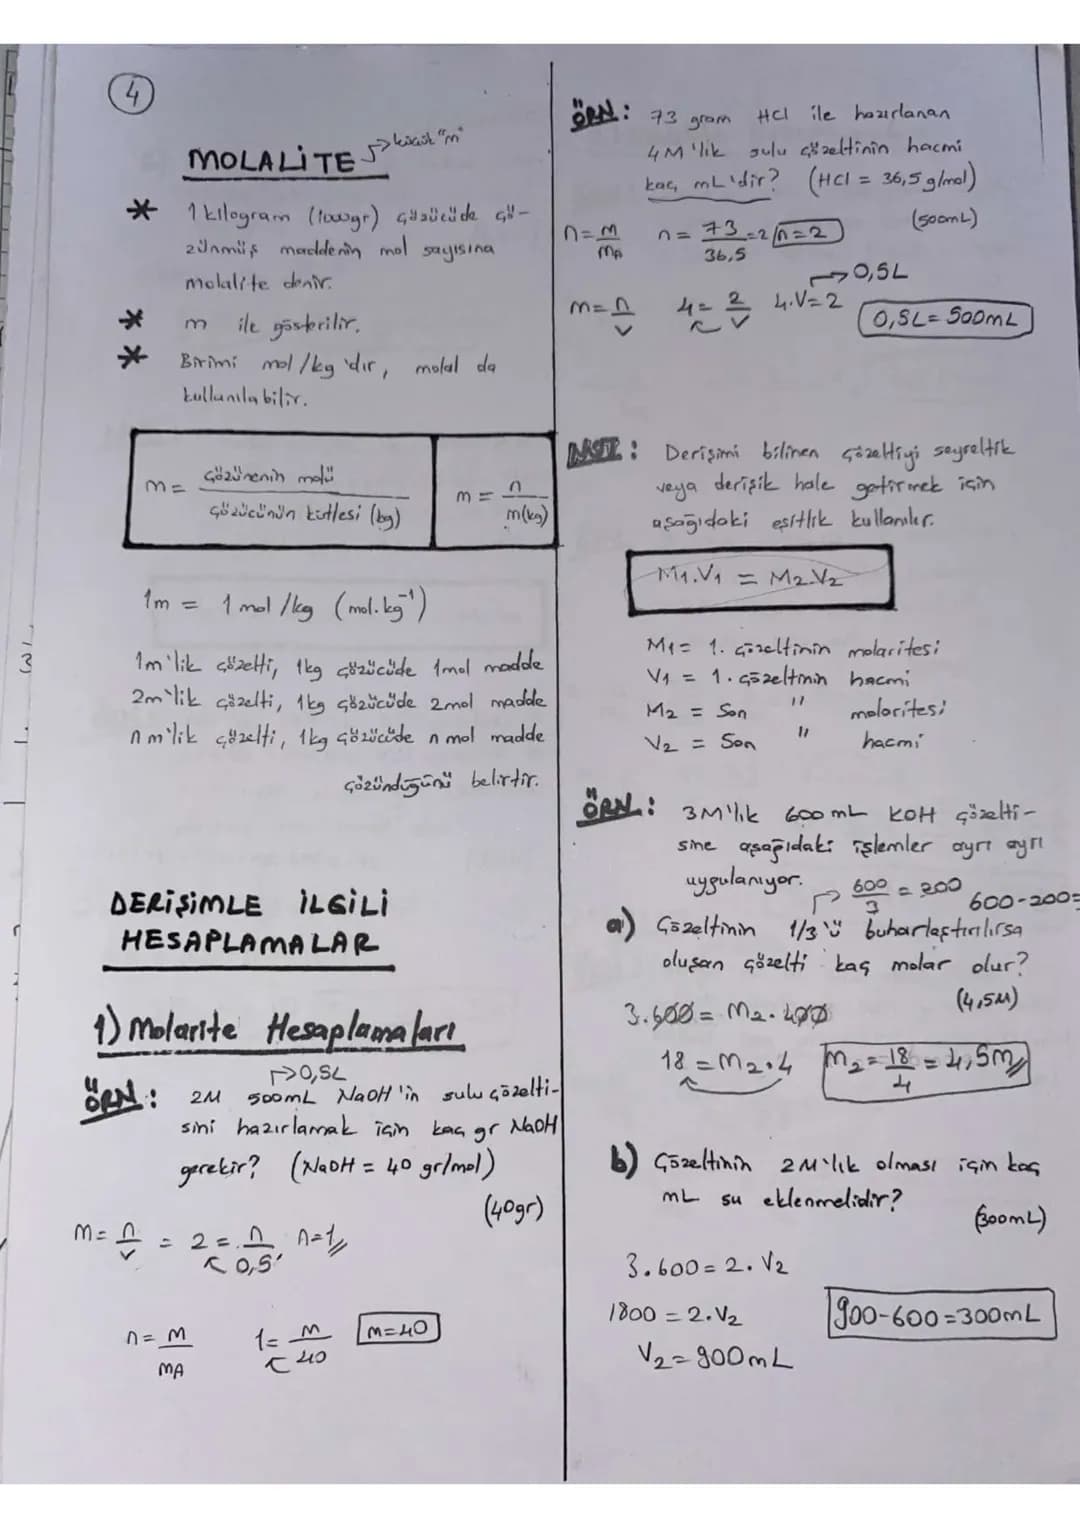 4
MOLALİTE → küçük "m"
* 1 kilogram (1000gr) çözücüde çö-
zünmüş maddenin mol sayısına
molalite denir.
* m ile gösterilir.
* Birimi mol/kg 'dır, molal da
kullanılabilir.
m = çözünenin molü / çözücünün kütlesi (kg)
m = n / m(kg)
1m = 1 mol/kg (mol.kg⁻¹)
1m'lik çözelti, 1kg çözücüde 1mol madde
2m'lik çözelti, 1kg çözücüde 2mol madde
n m'lik çözelti, 1kg çözücüde n mol madde
çözündüğünü belirtir.
DERİŞİMLE İLGİLİ
HESAPLAMALAR
1) Molarite Hesaplamaları
→0,5L
ÖRN: 2M 500mL NaOH'in sulu çözelti-
sini hazırlamak için kaç gr NaOH
gerekir? (NaOH = 40 gr/mol)
(40gr)
M = n/V = 2 = n/0,5 n=1
n = m/MA 1 = m/40 m=40
ÖRN: 73 gram HCl ile hazırlanan
4M'lik sulu çözeltinin hacmi
kaç mL'dir? (HCl = 36,5 g/mol)
(500mL)
n = m/MA n = 73/36,5 = 2 n=2
→0,5L
m = n/V 4 = 2/V 4.V=2
0,5L = 500mL
NOT: Derişimi bilinen çözeltiyi seyreltik
veya derişik hale getirmek için
aşağıdaki eşitlik kullanılır.
M1.V1 = M2.V2
M1 = 1. çözeltinin molaritesi
V1 = 1. çözeltinin hacmi
M2 = Son " molaritesi
V2 = Son " hacmi
ÖRN: 3M'lık 600 mL KOH çözelti-
sine aşağıdaki işlemler ayrı ayrı
uygulanıyor.
→ 600/3 = 200 600-200=
a) Çözeltinin 1/3'ü buharlaştırılırsa
oluşan çözelti kaç molar olur?
(4,5M)
3.600 = M2.400
18 = M2.4 M2 = 18/4 = 4,5M
b) Çözeltinin 2M'lık olması için kaç
mL su eklenmelidir?
(300mL)
3.600 = 2.V2
1800 = 2.V2
V2 = 900mL
900-600=300mL